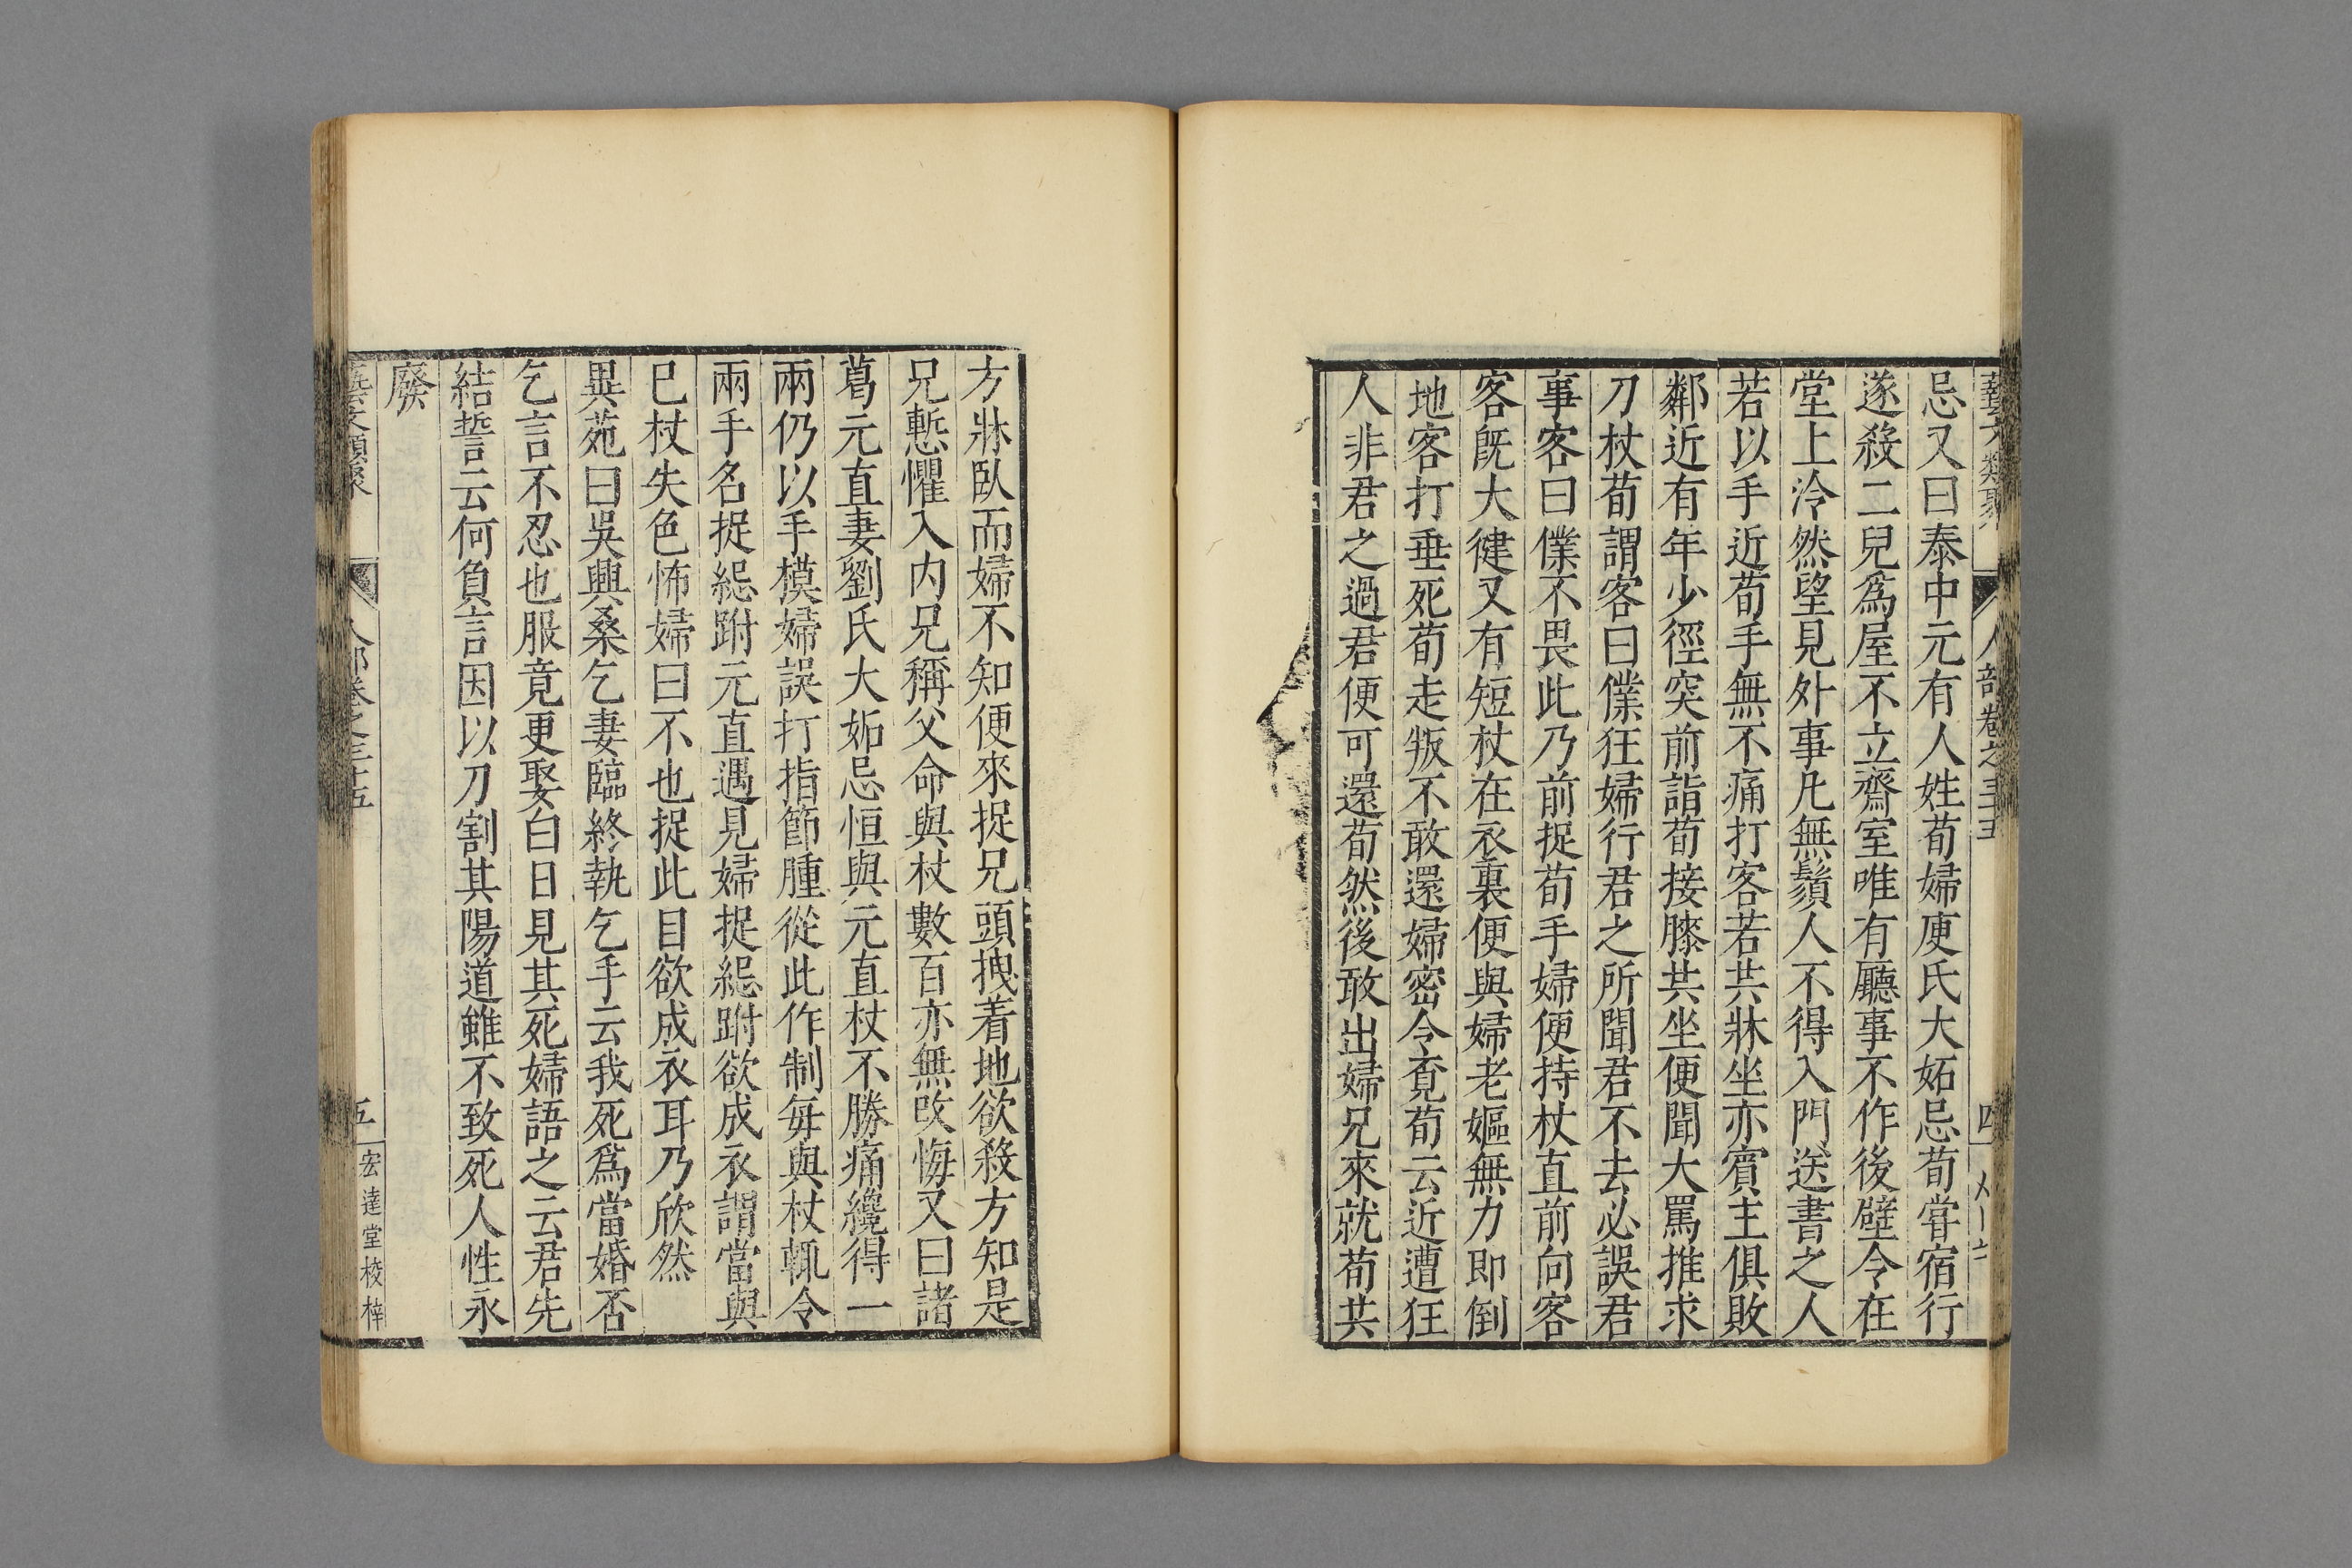 忌又曰泰中元有人姓荀婦庾氏大妬忌荀甞宿行
遂殺二兒爲屋不立齋室唯有廳事不作後壁令在
堂上泠然望見外事凡無鬚人不得入門送書之人
若以手近荀手無不痛打客若共牀坐亦賓主俱敗
鄰近有年少徑突前詣荀接膝共坐便聞大罵推求
刀杖荀謂客曰僕狂婦行君之所聞君不去必誤君
事客曰僕不畏此乃前捉荀手婦便持杖直前向客
客旣大健又有短杖在衣裏便與婦老嫗無力即倒
地客打垂死荀走叛不敢還婦密令覔荀云近遭狂
人非君之過君便可還荀然後敢出婦兄來就荀共
方牀臥而婦不知便來捉兄頭拽着地欲殺方知是
兄慙懼入内兄稱父命與杖數百亦無改悔又曰諸
葛元直妻劉氏大妬忌恒與元直杖不勝痛纔得一
兩仍以手摸婦誤打指節腫從此作制每與杖輒令
兩手名捉䋟跗元直遇見婦捉䋟跗欲成衣謂當與
巳杖失色怖婦曰不也捉此目欲成衣耳乃欣然
異苑曰吳興桑乞妻臨終執乞手云我死爲當婚否
乞言不忍也服竟更娶白日見其死婦語之云君先
結誓云何負言因以刀割其陽道雖不致死人性永
廢
藝文類聚 人部卷之三十五 五 宏達堂校梓